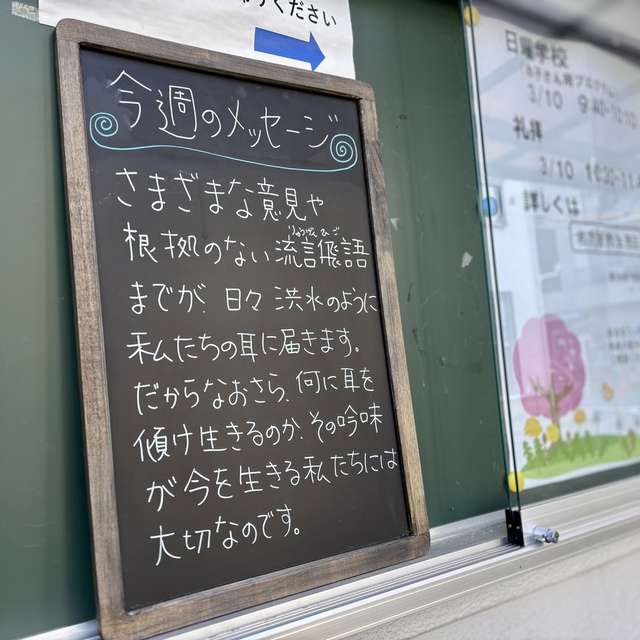 ください
今週のメッセージ
さまざまな意見や
根拠のない流言飛語
までが、日々 洪水のように
私たちの耳に届きます。
だからなおさら、何に耳を
傾け生きるのか、その吟味
が今を生きる私たちには
大切なのです。
日曜学校
3/10 9:40-10:10
礼拝
3/10 10:30-11:
詳しくは